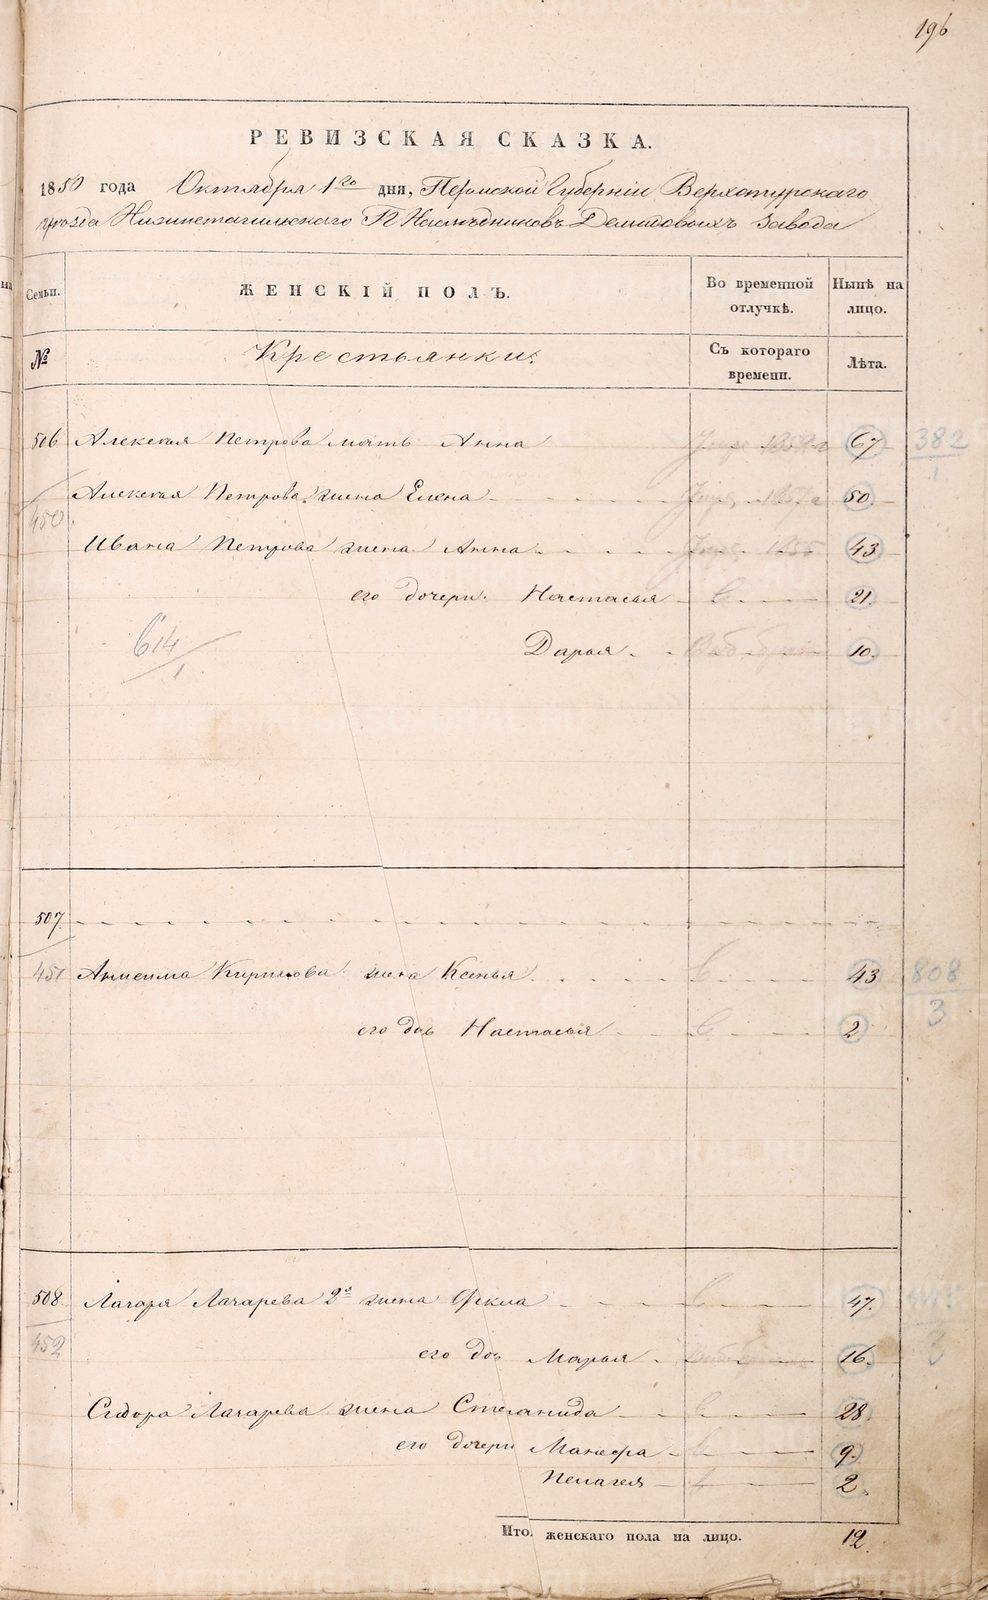 196
РЕВИЗСКАЯ СКАЗКА.
1850 года Октября 1го дня, Пермской Губерніи Верхотурскаго
уѣзда Нижнетагильскаго Г.г. Наслѣдниковъ Демидовыхъ Завода
Семьи. ЖЕНСКІЙ ПОЛЪ. Во временной отлучкѣ. Нынѣ на лицо.
№ Крестьянки. Съ котораго времени. Лѣта.
506 Алексѣя Петрова мать Анна 67 382
1
Алексѣя Петрова жена Елена 50
450
Ивана Петрова жена Анна 1855 43
его дочери Настасья 21
614
1
Дарья 10
507
451 Анисима Кирилова жена Ксенья 43 808
3
его дочь Настасья 2
508 Лазаря Лазарева 2я жена Фекла 47
452
его дочь Марья 16
Сидора Лазарева жена Степанида 28
его дочери Манефа 9
Пелагея 2
Ито. женскаго пола на лицо. 12
METRIKI.GASO-URAL.RU